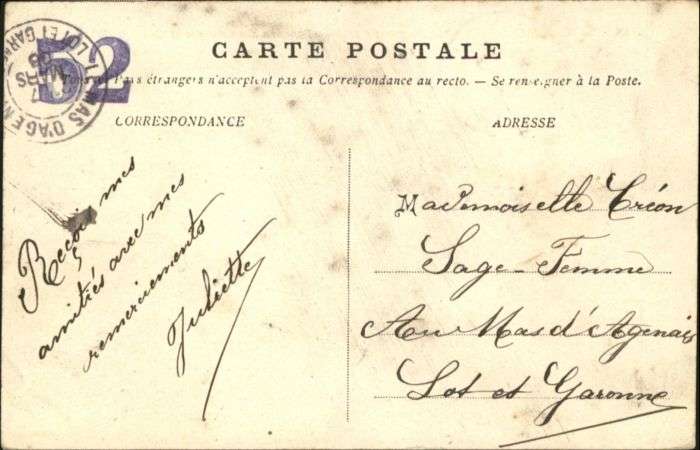 CARTE POSTALE
Tous les Pays étrangers n'acceptent pas la Correspondance au recto. — Se renseigner à la Poste.
CORRESPONDANCE
Reçois mes
amitiés avec mes
remerciements
Juliette
ADRESSE
Mademoiselle Créon
Sage-Femme
Au Mas d'Agenais
Lot et Garonne
52
MAS D'AGEN
LOT ET GARNE
7
MARS